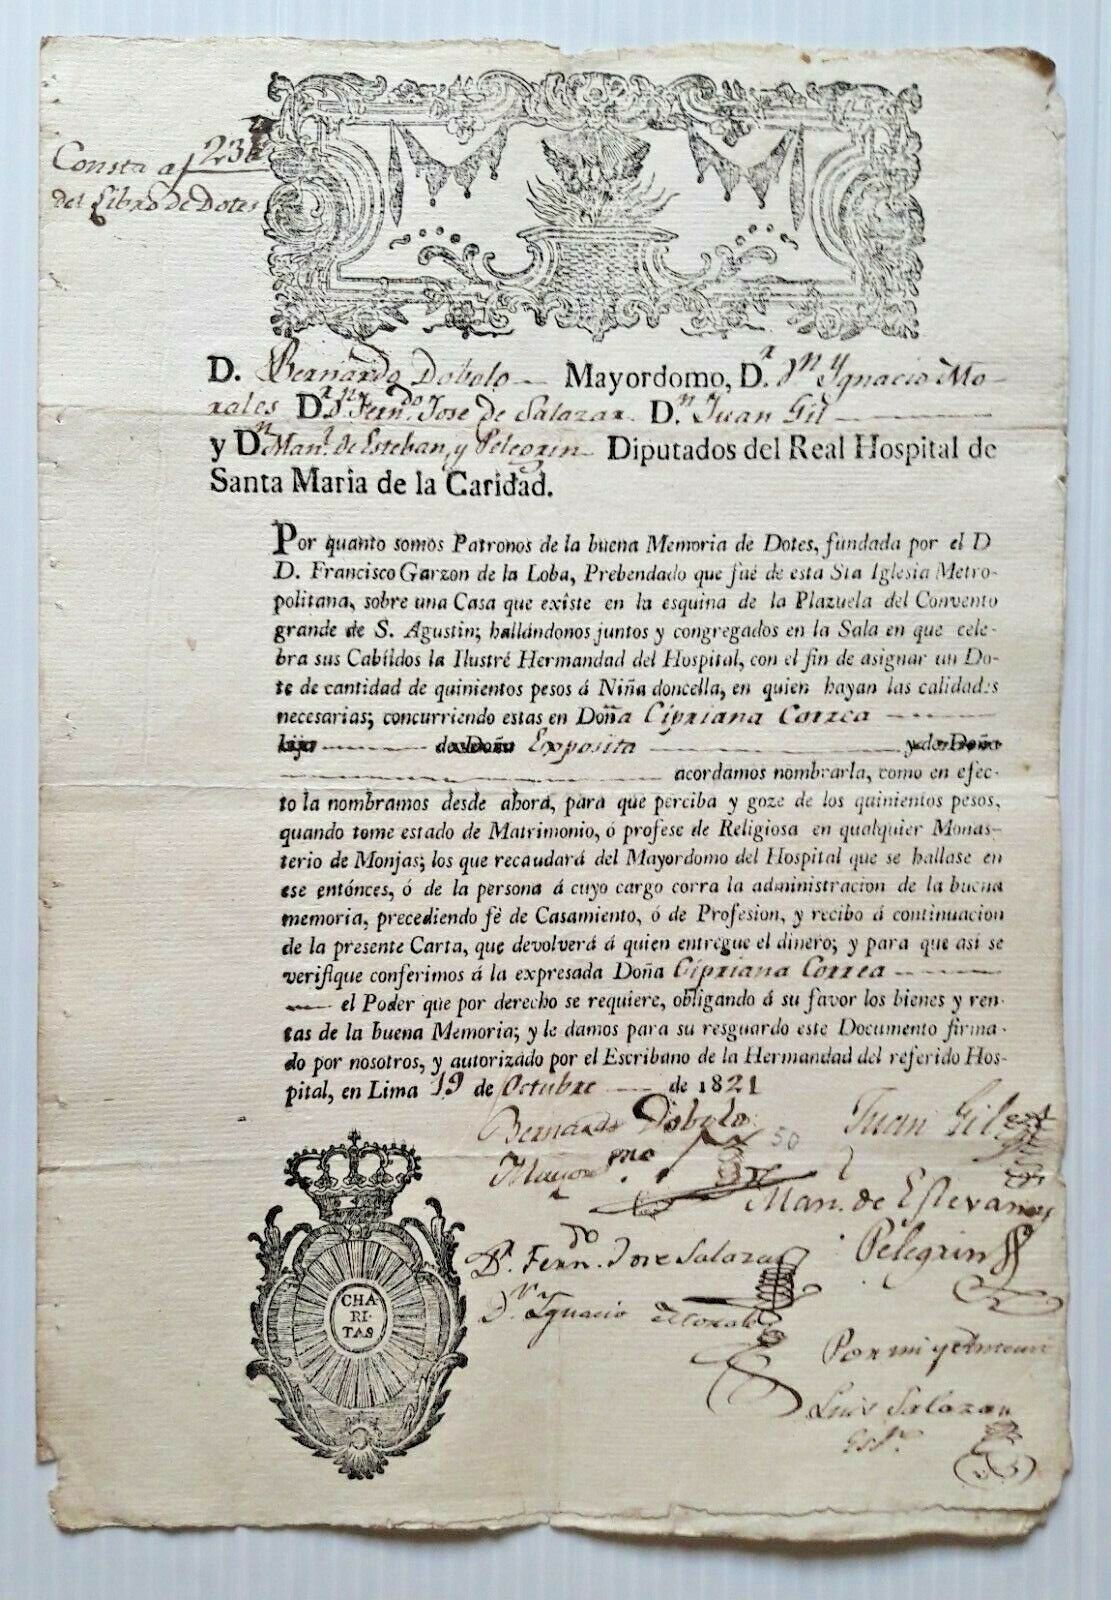 Consta a f 23
del Libro de Dotes
D. Bernardo Dobolo Mayordomo, D.r D.n Ygnacio Mo-
rales D.r D.n Fern.do Jose de Salazar D.n Juan Gil
y D.n Man.l de Esteban, y Pelegrin Diputados del Real Hospital de
Santa Maria de la Caridad.
Por quanto somos Patronos de la buena Memoria de Dotes, fundada por el D
D. Francisco Garzon de la Loba, Prebendado que fué de esta Sta Iglesia Metro-
politana, sobre una Casa que exîste en la esquina de la Plazuela del Convento
grande de S. Agustin; hallándonos juntos y congregados en la Sala en que cele-
bra sus Cabíldos la Ilustré Hermandad del Hospital, con el fin de asignar un Do-
te de cantidad de quinientos pesos á Niña doncella, en quien hayan las calidades
necesarias; concurriendo estas en Doña Cipriana Correa
hija de Doña Exposita y de Doña
acordamos nombrarla, como en efec-
to la nombramos desde ahora, para que perciba y goze de los quinientos pesos,
quando tome estado de Matrimonio, ó profese de Religiosa en qualquier Monas-
terio de Monjas; los que recaudará del Mayordomo del Hospital que se hallase en
ese entónces, ó de la persona á cuyo cargo corra la administracion de la buena
memoria, precediendo fè de Casamiento, ó de Profesion, y recibo á continuacion
de la presente Carta, que devolverá á quien entregue el dinero; y para que asi se
verifique conferimos á la expresada Doña Cipriana Correa
el Poder que por derecho se requiere, obligando á su favor los bienes y ren-
tas de la buena Memoria; y le damos para su resguardo este Documento firma-
do por nosotros, y autorizado por el Escribano de la Hermandad del referido Hos-
pital, en Lima 19 de Octubre de 1821
Bernardo Dobolo Juan Gil
Mayor.mo 50
Man. de Estevan y
Pelegrin
D.r Fern.do Jose Salazar
D.r Ygnacio Morales
CHA
RI-
TAS
Por mi y
Luis Salazar
Ess.o